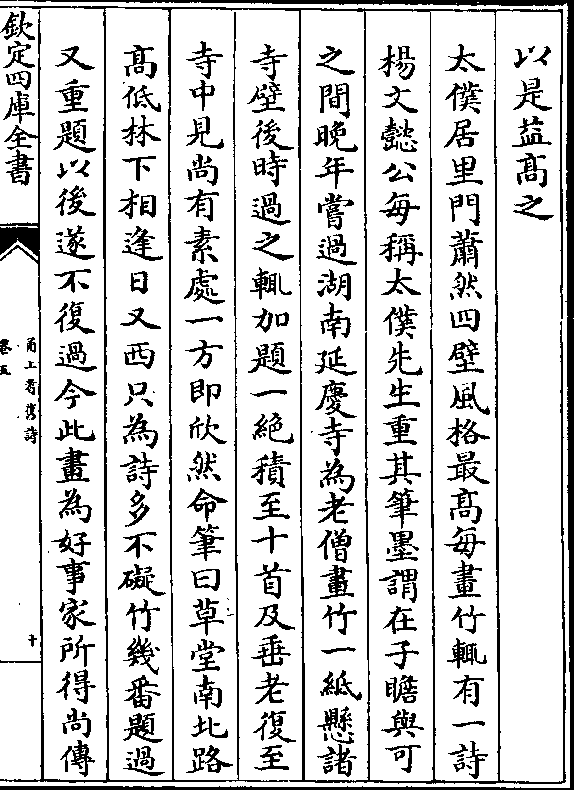 以是益髙之
太僕居里門蕭然四壁風格最髙每畫竹輒有一詩
楊文懿公每稱太僕先生重其筆墨謂在子瞻與可
之間晚年嘗過湖南延慶寺為老僧畫竹一紙懸諸
寺壁後時過之輒加題一絶積至十首及垂老復至
寺中見尚有素處一方即欣然命筆曰草堂南北路
髙低林下相逢日又西只為詩多不礙竹幾番題過
又重題以後遂不復過今此畫為好事家所得尚傳
欽定四庫全書
甬上耆舊詩
卷五
十